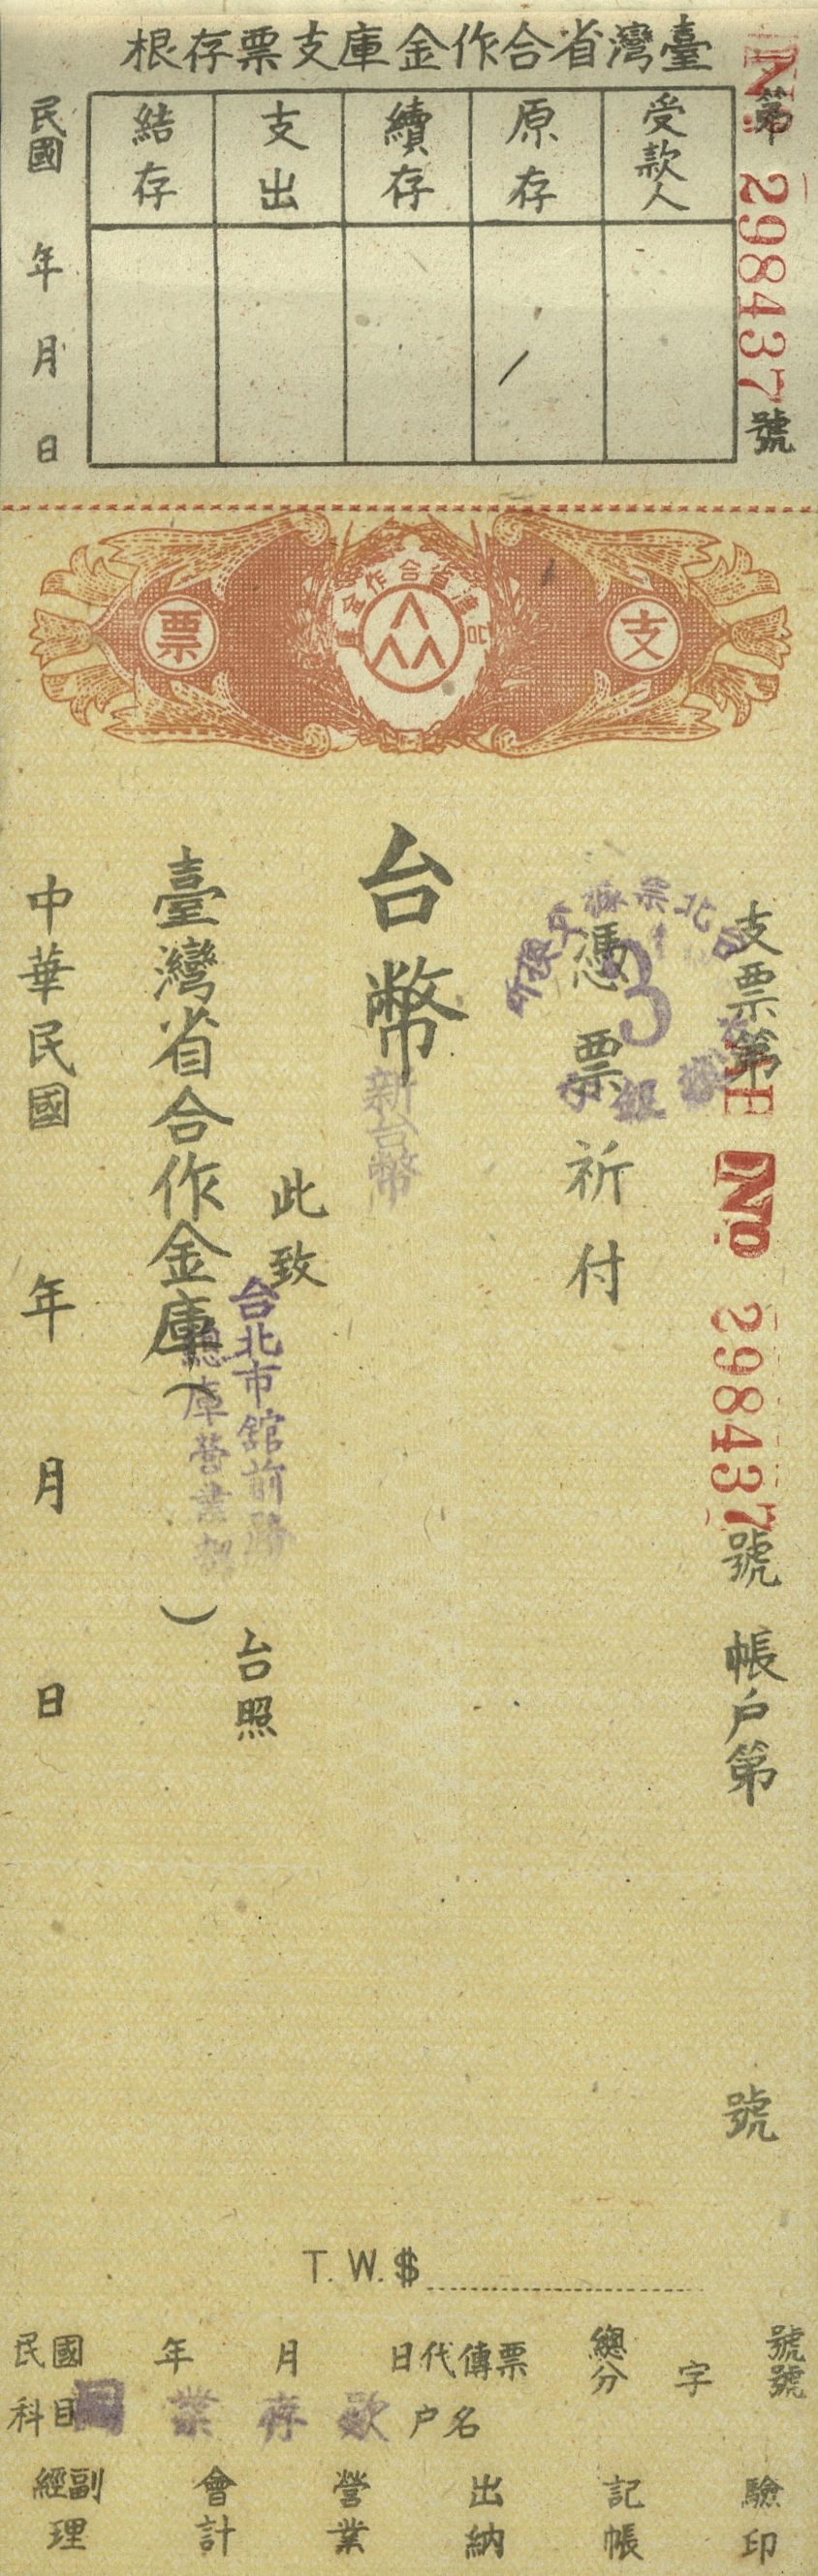 臺灣省合作金庫支票存根
第 No 298437 號
受款人
原存
續存
支出
結存
民國 年 月 日
支
票
臺灣省合作金庫
支票第 No 298437 號 帳戶第 號
憑票祈付
3
台幣
新台幣
此致
臺灣省合作金庫( )
台北市舘前路
總庫營業部
台照
中華民國 年 月 日
T. W. $
民國 年 月 日代傳票 總分 字 號號
科目 同業存款 戶名
經副理 會計 營業 出納 記帳 驗印